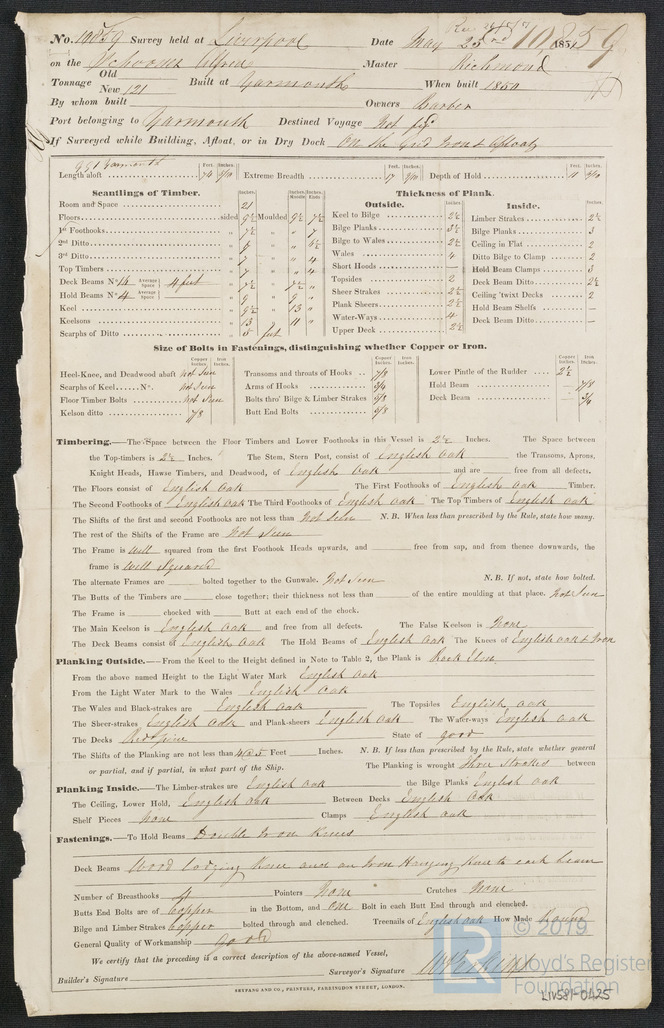 No. 10859 Survey held at Liverpool Date May 23rd 1851 10859
on the Schooner Alfred Master Richmond
Tonnage Old New 121 Built at Yarmouth When built 1850
By whom built Owners Barber
Port belonging to Yarmouth Destined Voyage Not
If Surveyed while Building, Afloat, or in Dry Dock On the Grid Iron & Afloat
Length aloft Feet. Inches. 74 Extreme Breadth Feet. Inches. 17 Depth of Hold Feet. Inches. 11
Scantlings of Timber.
Inches. Inches. Middle Inches. Ends
Room and Space 21
Floors sided 9½ Moulded 9½ 7½
1st Foothooks 7½ 7
2nd Ditto 7 6½
3rd Ditto 7 4
Top Timbers 7 4
Deck Beams No. 14 Average Space 4 feet 7½ 7½
Hold Beams No. 4 Average Space 9 9
Keel 9½ 13
Keelsons 13 11
Scarphs of Ditto 5 feet
Thickness of Plank.
Outside. Inches.
Keel to Bilge 2½
Bilge Planks 3½
Bilge to Wales 2½
Wales 4
Short Hoods —
Topsides 2
Sheer Strakes 2½
Plank Sheers 2½
Water-Ways 4
Upper Deck 2½
Inside. Inches.
Limber Strakes 2½
Bilge Planks 3
Ceiling in Flat 2
Ditto Bilge to Clamp 2
Hold Beam Clamps 3
Deck Beam Ditto 2½
Ceiling 'twixt Decks 2
Hold Beam Shelfs —
Deck Beam Ditto —
Size of Bolts in Fastenings, distinguishing whether Copper or Iron.
Copper Inches. Iron Inches.
Heel-Knee, and Deadwood abaft Not Seen
Scarphs of Keel No. Not Seen
Floor Timber Bolts Not Seen
Kelson ditto 7/8
Copper Inches. Iron Inches.
Transoms and throats of Hooks 7/8
Arms of Hooks
Bolts thro' Bilge & Limber Strakes 5/8
Butt End Bolts 5/8
Copper Inches. Iron Inches.
Lower Pintle of the Rudder 2½
Hold Beam — 7/8
Deck Beam —
Timbering.—The Space between the Floor Timbers and Lower Foothooks in this Vessel is 2½ Inches. The Space between
the Top-timbers is 2½ Inches. The Stem, Stern Post, consist of English Oak the Transoms, Aprons,
Knight Heads, Hawse Timbers, and Deadwood, of English Oak and are free from all defects.
The Floors consist of English Oak The First Foothooks of English Oak Timber.
The Second Foothooks of English Oak The Third Foothooks of English Oak The Top Timbers of English Oak
The Shifts of the first and second Foothooks are not less than Not Seen N. B. When less than prescribed by the Rule, state how many.
The rest of the Shifts of the Frame are Not Seen
The Frame is well squared from the first Foothook Heads upwards, and free from sap, and from thence downwards, the
frame is well squared
The alternate Frames are bolted together to the Gunwale. Not Seen N. B. If not, state how bolted.
The Butts of the Timbers are close together; their thickness not less than of the entire moulding at that place. Not Seen
The Frame is chocked with Butt at each end of the chock.
The Main Keelson is English Oak and free from all defects. The False Keelson is None
The Deck Beams consist of English Oak The Hold Beams of English Oak The Knees of English Oak & Iron
Planking Outside.—From the Keel to the Height defined in Note to Table 2, the Plank is Rock Elm
From the above named Height to the Light Water Mark English Oak
From the Light Water Mark to the Wales English Oak
The Wales and Black-strakes are English Oak The Topsides English Oak
The Sheer-strakes English Oak and Plank-sheers English Oak The Water-ways English Oak
The Decks Red Pine State of good
The Shifts of the Planking are not less than 4 @ 5 Feet Inches. N. B. If less than prescribed by the Rule, state whether general
or partial, and if partial, in what part of the Ship. The Planking is wrought three strakes between
Planking Inside.—The Limber-strakes are English Oak the Bilge Planks English Oak
The Ceiling, Lower Hold, English Oak Between Decks English Oak
Shelf Pieces None Clamps English Oak
Fastenings.—To Hold Beams Double Iron Knees
Deck Beams Wood lodging Knee and an Iron Hanging Knee to each beam
Number of Breasthooks 4 Pointers None Crutches None
Butts End Bolts are of Copper in the Bottom, and One Bolt in each Butt End through and clenched.
Bilge and Limber Strakes Copper bolted through and clenched. Treenails of English Oak How Made Round
General Quality of Workmanship Good
We certify that the preceding is a correct description of the above-named Vessel,
Builder's Signature Surveyor's Signature
SEYFANG AND CO., PRINTERS, FARRINGDON STREET, LONDON.
LR © 2019
Lloyd's Register
Foundation
LIV581-0425